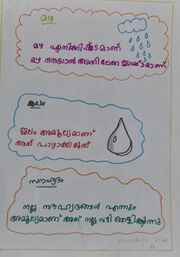 മഴ
മഴ എനിക്കിഷ്ടമാണ്
മഴ നനയാൻ അതിലേറെ ഇഷ്ടമാണ്
ജലം
ജലം അമൂല്യമാണ്
അത് പാഴാക്കരുത്
സൗഹൃദം
നല്ല സൗഹൃദങ്ങൾ എന്നും
അമൂല്യമാണ് അത് നല്ല വഴി തെളിക്കുന്നു